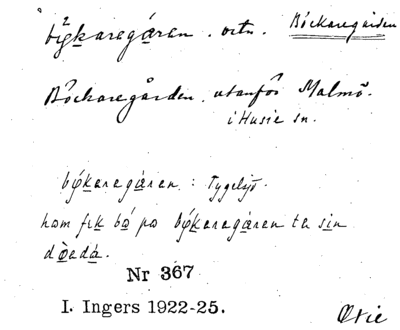 bø̂karegáren. ortn. Böckaregården
Böckaregården, utanför Malmö.
i Husie sn.
bǿkaregáren : Tygelsjö.
hom fik bo po bǿkaregáren te sin
døedá.
Nr 367
I. Ingers 1922-25.
Oxie